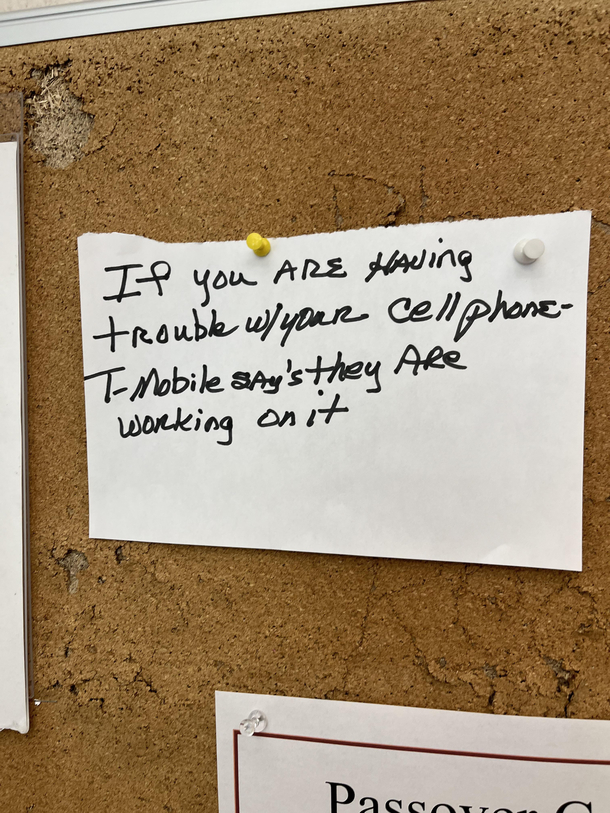 If you ARE HAVing
trouble w/your cell phone-
T-Mobile SAy's they ARe
working on it
Passover